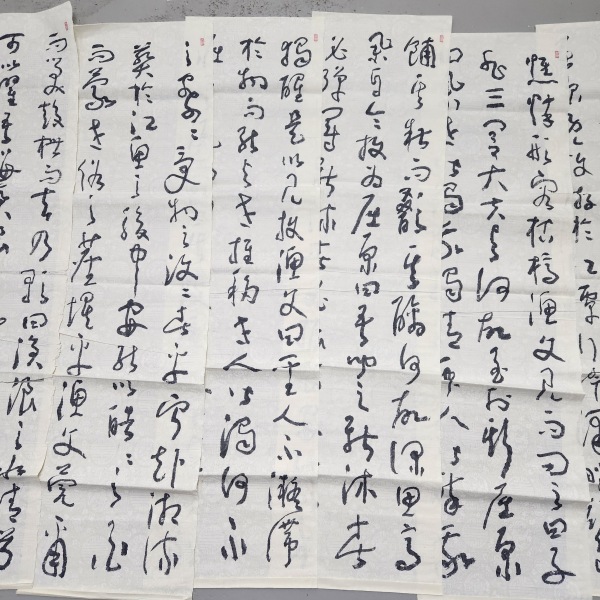 憔悴形容枯槁漁父見而问之曰子
非三閭大夫與何故至於斯屈原
曰舉世皆濁我獨清眾人皆醉我
餔其糟而歠其醨何故深思高
舉自令放為屈原曰吾聞之新沐者
必彈冠新
獨醒是以見放漁父曰聖人不凝滯
於物而能與世推移世人皆濁何不
之察察受物之汶汶者乎寧赴湘流
葬於江魚之腹中安能以皓皓之白
而蒙世俗之塵埃乎漁父莞爾
而笑鼓枻而去乃歌曰滄浪之水清兮
可以濯吾纓